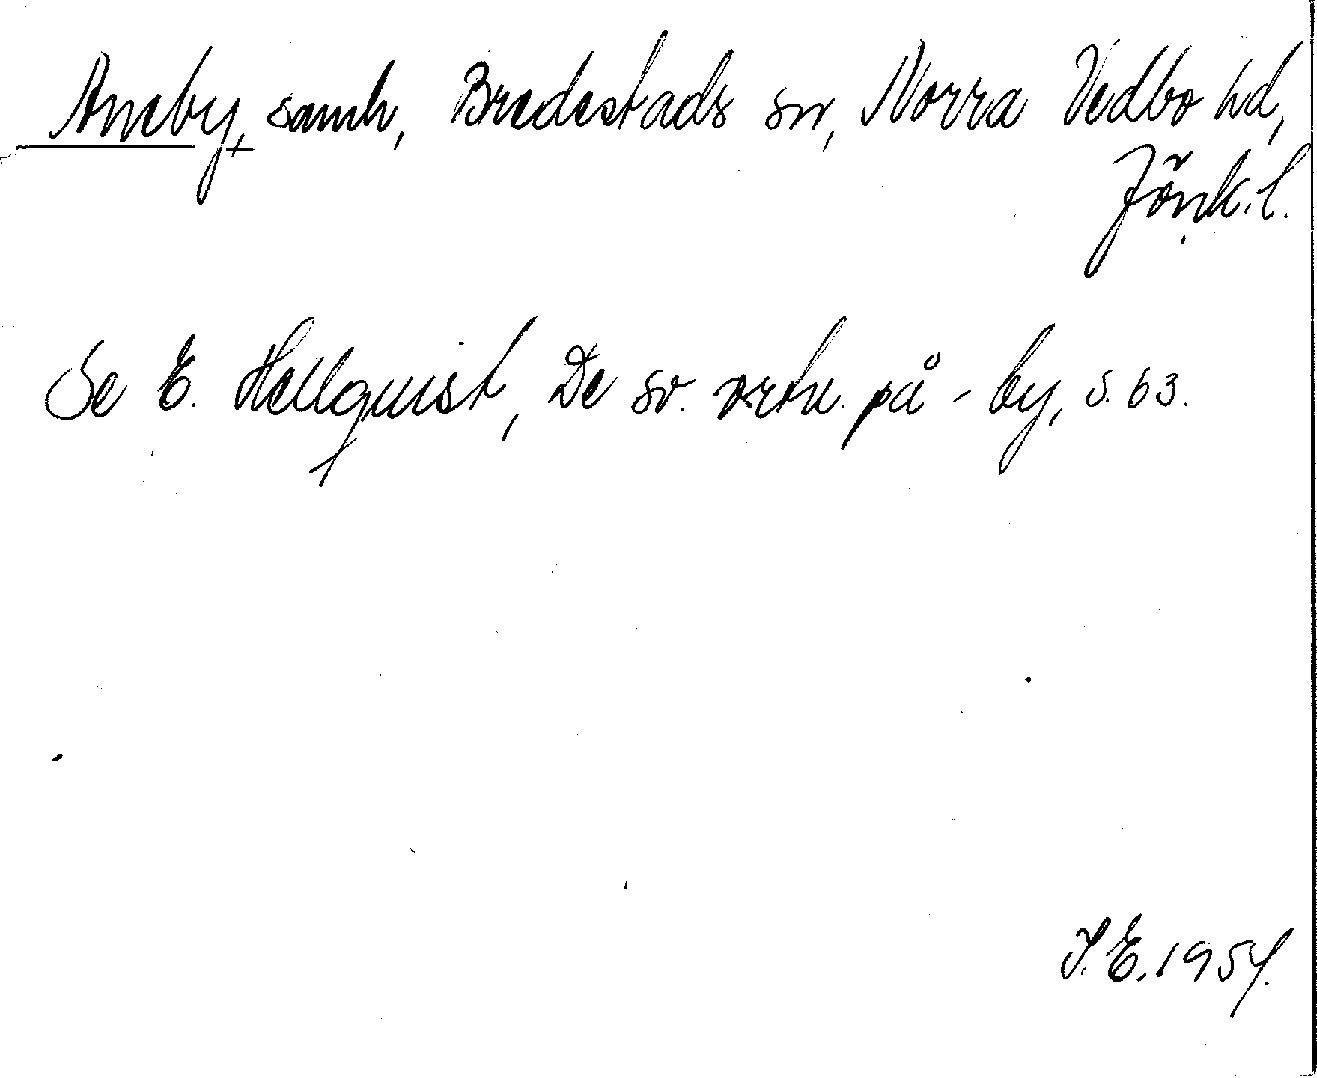 Aneby, samh, Bredestads sn, Norra Vedbo hd,
Jönk.l.
Se E. Hellquist, De sv. ortn. på -by, s. 63.
I.E. 1954.